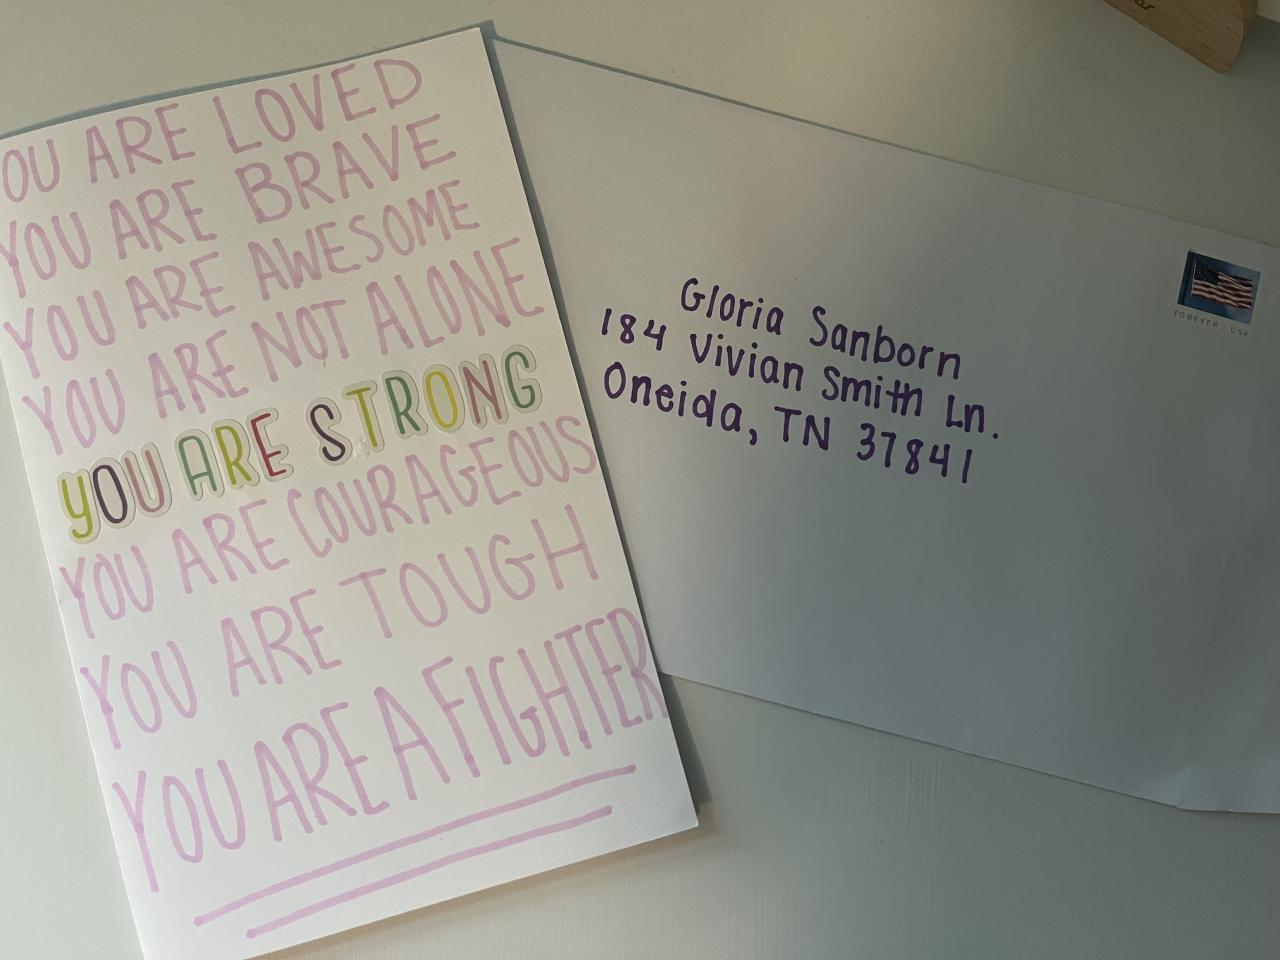 OU ARE LOVED
YOU ARE BRAVE
YOU ARE AWESOME
YOU ARE NOT ALONE
yOU ARE STRONG
YOU ARE COURAGEOUS
YOU ARE TOUGH
YOU ARE A FIGHTER
Gloria Sanborn
184 Vivian Smith Ln.
Oneida, TN 37841
FOREVER / USA